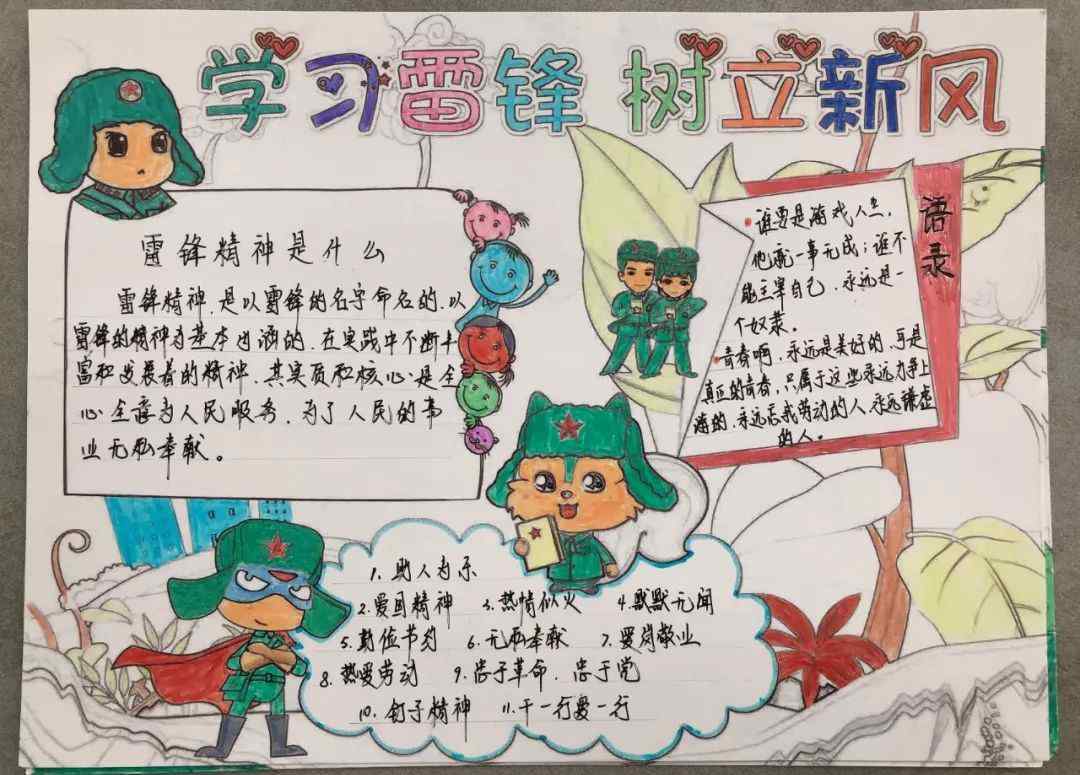 学习雷锋 树立新风
雷锋精神是什么
雷锋精神，是以雷锋的名字命名的，以
雷锋的精神为基本内涵的、在实践中不断丰
富和发展着的精神，其实质和核心是全
心全意为人民服务，为了人民的事
业无私奉献。
语录
谁要是游戏人生，
他就一事无成；谁不
能主宰自己，永远是一
个奴隶。
青春啊，永远是美好的，可是
真正的青春，只属于这些永远力争上
游的，永远忘我劳动的人，永远谦虚
的人。
1. 助人为乐
2. 爱国精神 3. 热情似火 4. 默默无闻
5. 勤俭节约 6. 无私奉献 7. 爱岗敬业
8. 热爱劳动 9. 忠于革命，忠于党
10. 钉子精神 11. 干一行爱一行